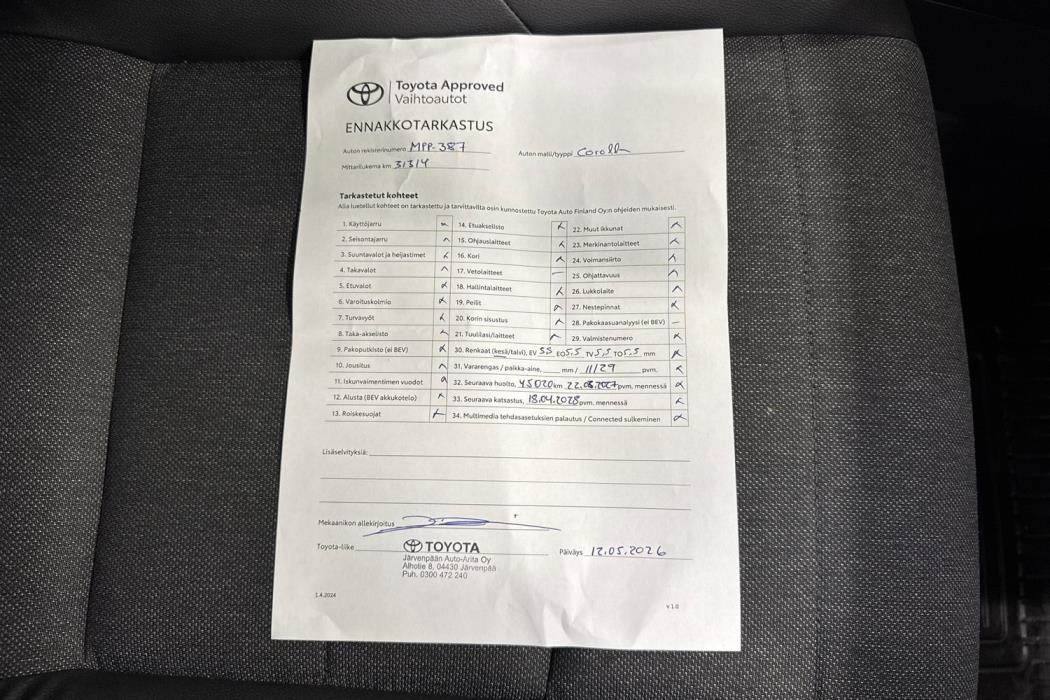 Toyota Approved
Vaihtoautot
ENNAKKOTARKASTUS
Auton rekisterinumero MPP-387 Auton malli/tyyppi Corolla
Mittarilukema km 31314
Tarkastetut kohteet
Alla luetellut kohteet on tarkastettu ja tarvittavilta osin kunnostettu Toyota Auto Finland Oy:n ohjeiden mukaisesti.
1. Käyttöjarru 14. Etuakselisto 22. Muut ikkunat
2. Seisontajarru 15. Ohjauslaitteet 23. Merkinantolaitteet
3. Suuntavalot ja heijastimet 16. Kori 24. Voimansiirto
4. Takavalot 17. Vetolaitteet 25. Ohjattavuus
5. Etuvalot 18. Hallintalaitteet 26. Lukkolaite
6. Varoituskolmio 19. Peilit 27. Nestepinnat
7. Turvavyöt 20. Korin sisustus 28. Pakokaasuanalyysi (ei BEV)
8. Taka-akselisto 21. Tuulilasi/laitteet 29. Valmistenumero
9. Pakoputkisto (ei BEV) 30. Renkaat (kesä/talvi), EV 5,5 EO 5,5 TV 5,5 TO 5,5 mm
10. Jousitus 31. Vararengas / paikka-aine, mm / 11/29 pvm.
11. Iskunvaimentimen vuodot 32. Seuraava huolto, 45020 km 22.08.2027 pvm. mennessä
12. Alusta (BEV akkukotelo) 33. Seuraava katsastus, 18.04.2028 pvm. mennessä
13. Roiskesuojat 34. Multimedia tehdasasetuksien palautus / Connected sulkeminen
Lisäselvityksiä:
Mekaanikon allekirjoitus
Toyota-liike TOYOTA Päiväys 12.05.2026
Järvenpään Auto-Arita Oy
Alhotie 8, 04430 Järvenpää
Puh. 0300 472 240
1.4.2024 v 1.0